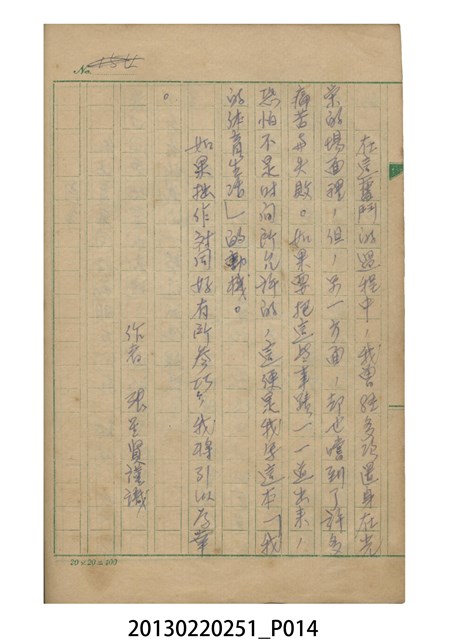 No. 184
在這奮鬥的過程中，我曾經多次置身在光
榮的場面裡，但，另一方面，卻也嚐到了許多
痛苦与失敗。如果要把這些事蹟一一述出來，
恐怕不是时间所允許的，這便是我写這本「我
的体育生活」的動機。
如果拙作对同好有所参攷，我将引以为幸
。
作者 張星賢謹識
20×20=400
20130220251_P014